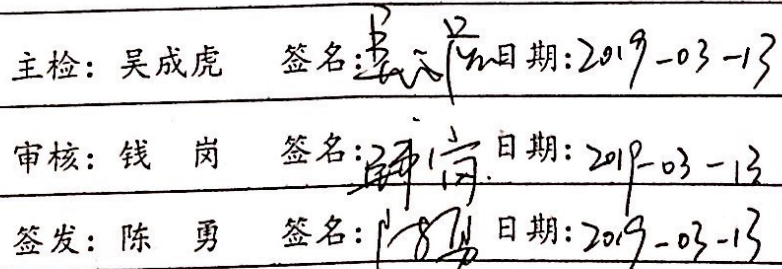 主检：吴成虎 签名： 日期：2019-03-13
审核：钱 岗 签名： 日期：2019-03-13
签发：陈 勇 签名： 日期：2019-03-13